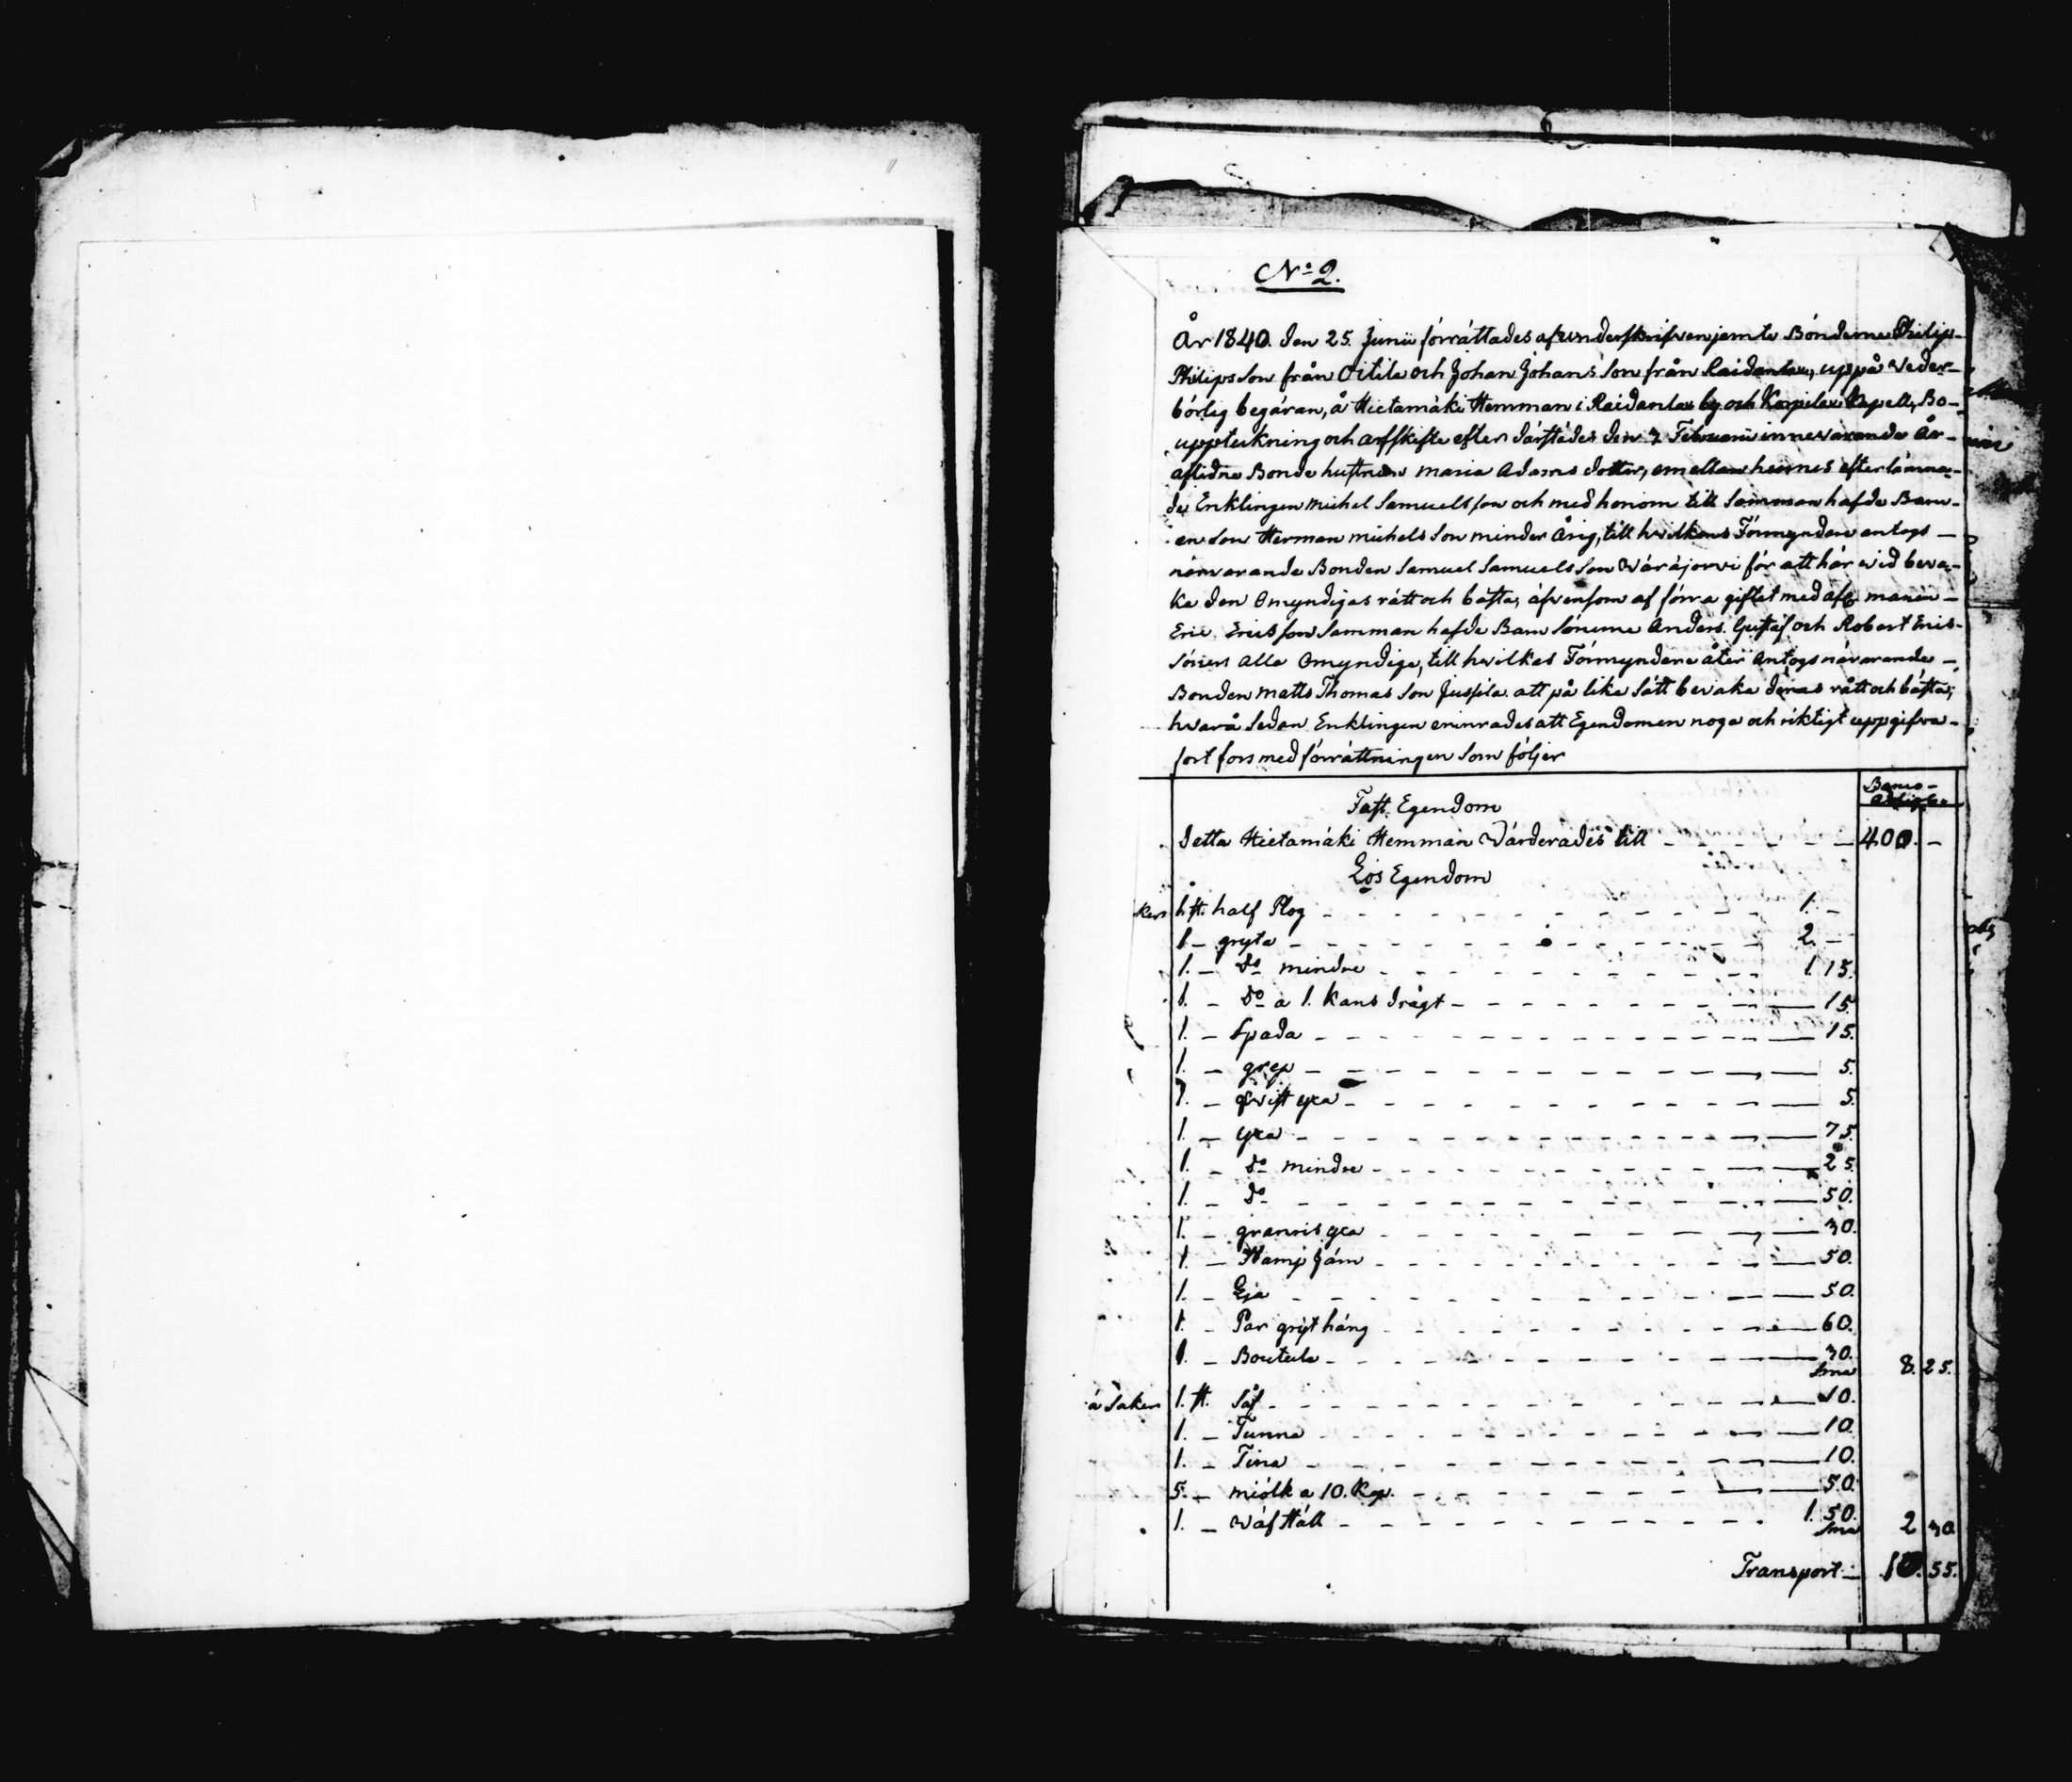 No 2.
År 1840. den 25. Junii förrättades af underskrifven jemte Bönderne Philip
Philipsson från Oitila och Johan Johans Son från Raidanlax, uppå veder-
börlig begäran, å Hietamäki Hemman i Raidanlax by och Karpelax Capell, Bo-
uppteckning och arfskifte efter därstädes den 7 Februarii innevarande År
aflidne Bonde hustrun Maria Adams dotter, emellan hennes efterlämna-
de Enklingen Michel Samuelsson och med honom till Samman hafde Barn-
en Son Herman Michels Son minder Årig, till hvilkens Förmyndare antogs
närvarande Bonden Samuel Samuels Son Väräjarvi för att här wid beva-
ka den Omyndigas rätt och bästa, äfvensom af förra giftet med afl. mannen
Eric Ericsson Samman hafde Barn Sönerne Anders. Gustaf och Robert Erics-
Söner Alla Omyndige, till hvilkas Förmyndare åter Antogs närvarande
Bonden Matts Thomas Son Juspila att på lika Sätt bevaka deras rätt och bästa;
hvarå Sedan Enklingen erinrades att Egendomen noga och riktigt uppgifva
fort fors med förrättningen Som följer
Banco
Fast Egendom
detta Hietamäki Hemman Värderades till 400. -
Lös Egendom
ker 1. st. half Plog 1. -
1 - gryta 2. -
1. - do mindre 1. 15.
1. - do a 1. Kans drägt 15.
1. - Spada 15.
1. - grep 5.
1. - qvist yxa 5.
1. - yxa 75.
1. - do mindre 25.
1. - do 50.
1. - granris yxa 30.
1. - Stamp Järn 50.
1. - Lja 50.
1. - Par gryt häng 60.
1. - Boutule 30.
Sma 8. 25.
ä Saker 1. st. Så 10.
1. - Tunna 10.
1. - Tina 10.
5. - miölk a 10. Kop. 50.
1. - Wäfställ 1. 50.
Sma 2 30
Transport 10. 55.